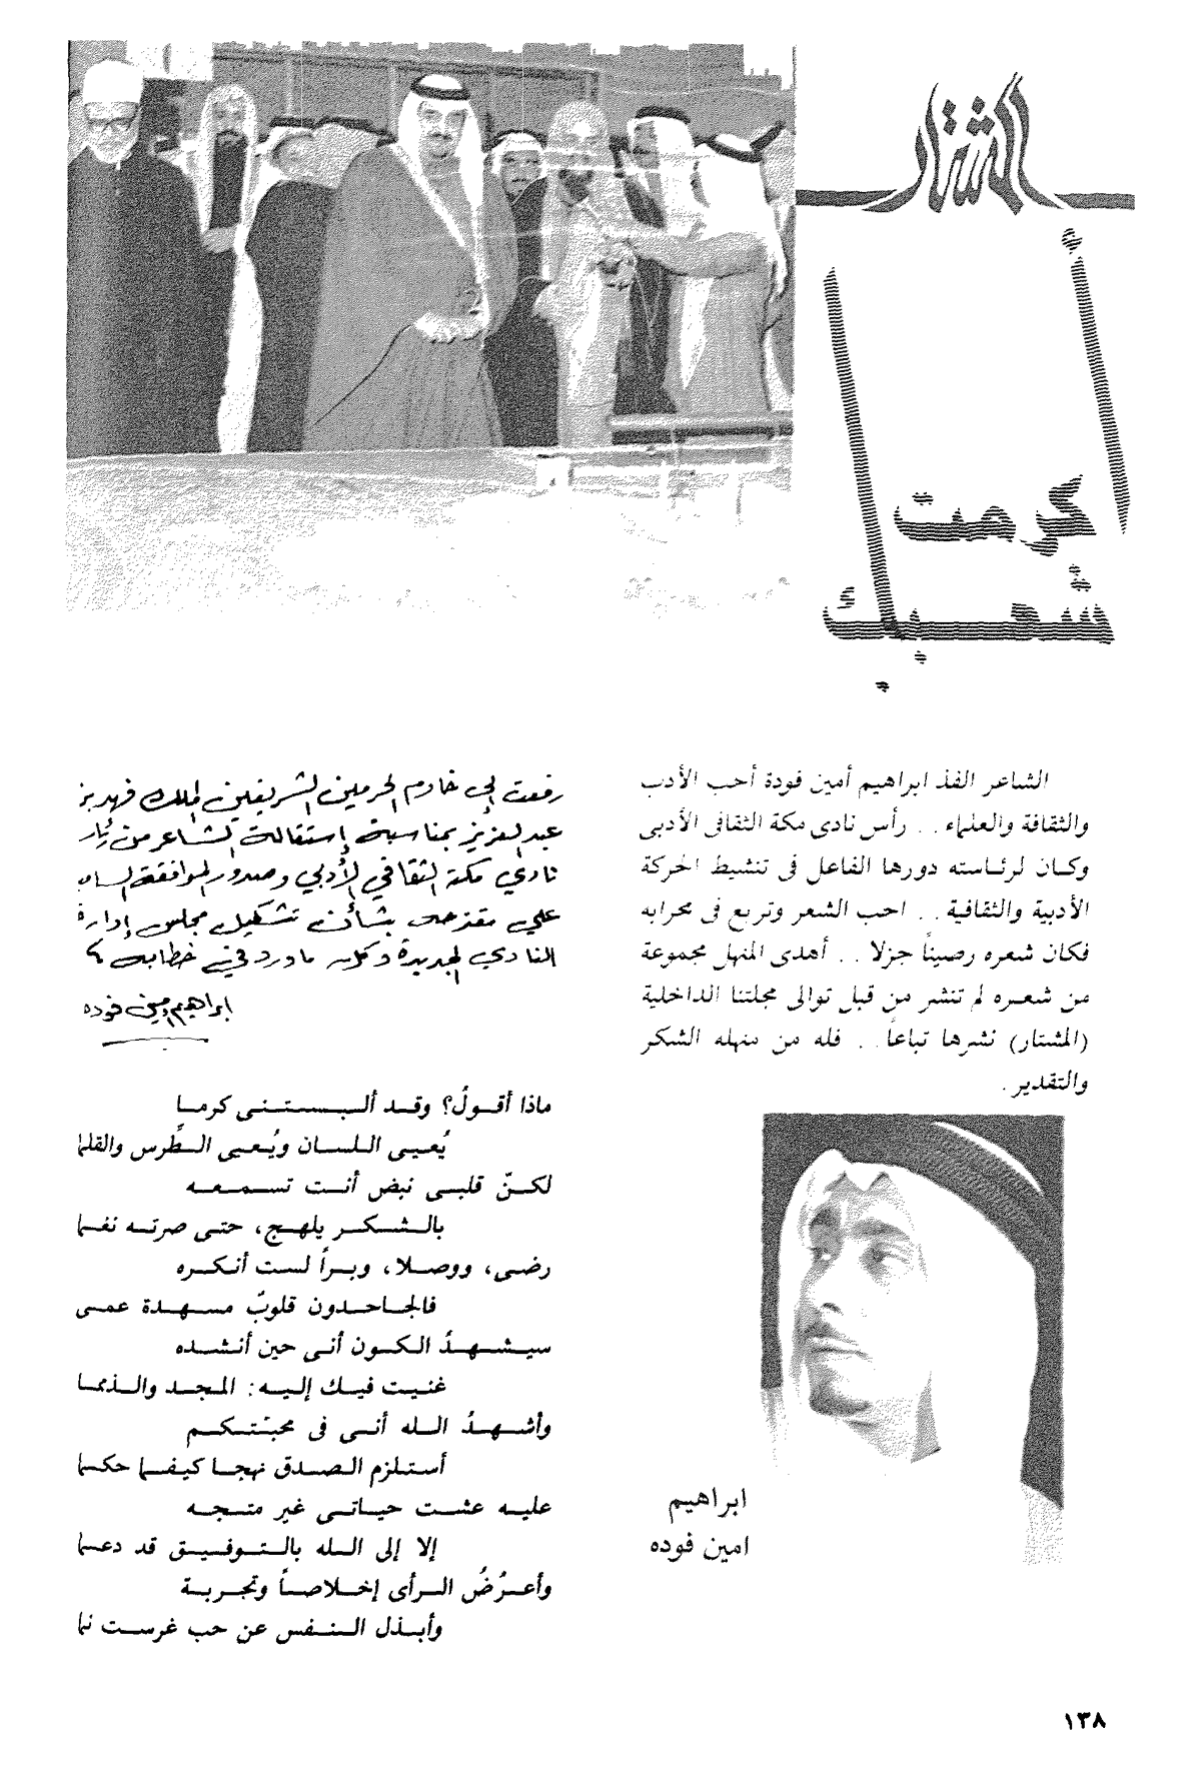 المشتار
أكرمت
شعبك
الشاعر الفذ ابراهيم أمين فودة أحب الأدب
والثقافة والعلماء . . رأس نادى مكة الثقافى الأدبى
وكان لرئاسته دورها الفاعل فى تنشيط الحركة
الأدبية والثقافية . . احب الشعر وتربع فى محرابه
فكان شعره رصيناً جزلا . . أهدى المنهل مجموعة
من شعره لم تنشر من قبل توالى مجلتنا الداخلية
(المشتار) نشرها تباعاً . . فله من منهله الشكر
والتقدير .
ابراهيم
امين فوده
رفعت إلى خادم الحرمين الشريفين الملك فهد بن
عبد العزيز بمناسبة إستقالة الشاعر من
نادي مكة الثقافي الأدبي وصدور الموافقة
علي مقترحه بشأن تشكيل مجلس إدارة
النادي الجديدة وكل ما ورد في خطابه
ابراهيم امين فوده
ماذا أقولُ؟ وقد ألبستنى كرما
يُعيى اللسان ويُعيى الطِّرس والقلما
لكنّ قلبى نبض أنت تسمعه
بالشكر يلهج، حتى صرته نغما
رضى، ووصلا، وبراً لست أنكره
فالجاحدون قلوبٌ مسهدة عمى
سيشهدُ الكون أنى حين أنشده
غنيت فيك إليه: المجد والذمما
وأشهدُ الله أنى فى محبّتكم
أستلزم الصدق نهجا كيفما حكما
عليه عشت حياتى غير متجه
إلا إلى الله بالتوفيق قد دعما
وأعرُضُ الرأى إخلاصاً وتجربة
وأبذل النفس عن حب غرست نما
١٣٨